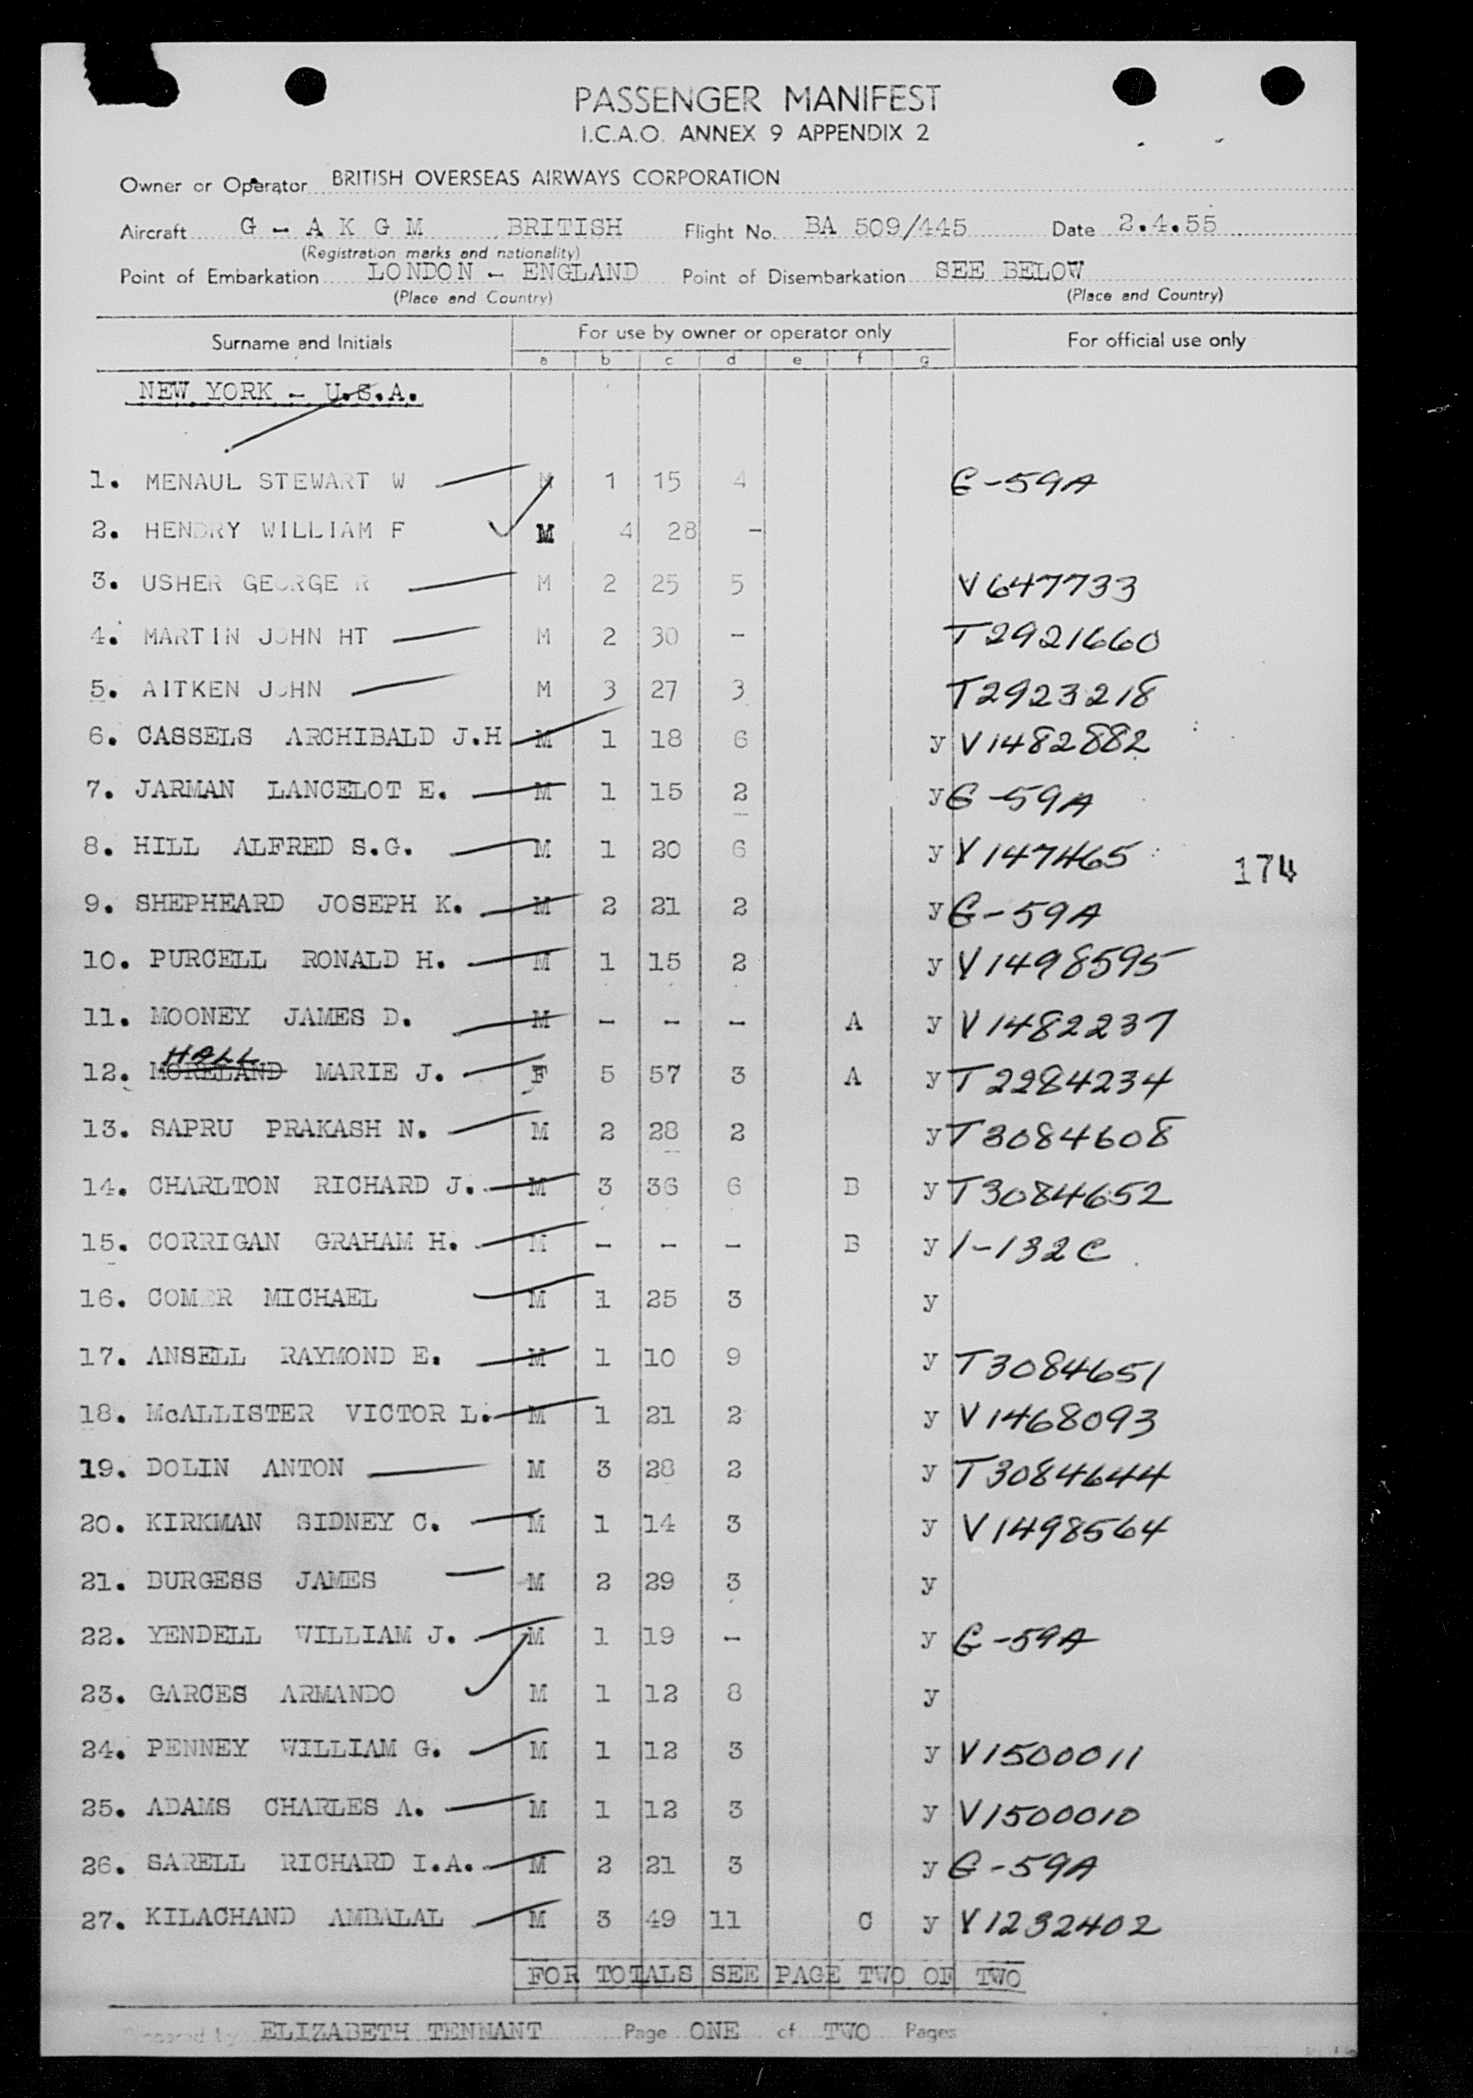 PASSENGER MANIFEST
I.C.A.O. ANNEX 9 APPENDIX 2
Owner or Operator BRITISH OVERSEAS AIRWAYS CORPORATION
Aircraft G - A K G M BRITISH Flight No. BA 509/445 Date 2.4.55
(Registration marks and nationality)
Point of Embarkation LONDON - ENGLAND Point of Disembarkation SEE BELOW
(Place and Country) (Place and Country)
Surname and Initials For use by owner or operator only For official use only
a b c d e f g
NEW YORK - U.S.A.
1. MENAUL STEWART W M 1 15 4 G-59A
2. HENDRY WILLIAM F M 4 28 -
3. USHER GEORGE R M 2 25 5 V647733
4. MARTIN JOHN HT M 2 30 - T2921660
5. AITKEN JOHN M 3 27 3 T2923218
6. CASSELS ARCHIBALD J.H M 1 18 6 y V1482882
7. JARMAN LANCELOT E. M 1 15 2 y G-59A
8. HILL ALFRED S.G. M 1 20 6 y V147465
174
9. SHEPHEARD JOSEPH K. M 2 21 2 y G-59A
10. PURCELL RONALD H. M 1 15 2 y V1498595
11. MOONEY JAMES D. M - - - A y V1482237
HALL
12. MORELAND MARIE J. F 5 57 3 A y T2284234
13. SAPRU PRAKASH N. M 2 28 2 y T3084608
14. CHARLTON RICHARD J. M 3 36 6 B y T3084652
15. CORRIGAN GRAHAM H. M - - - B y 1-132C
16. COMER MICHAEL M 1 25 3 y
17. ANSELL RAYMOND E. M 1 10 9 y T3084651
18. McALLISTER VICTOR L. M 1 21 2 y V1468093
19. DOLIN ANTON M 3 28 2 y T3084644
20. KIRKMAN SIDNEY C. M 1 14 3 y V1498564
21. BURGESS JAMES M 2 29 3 y
22. YENDELL WILLIAM J. M 1 19 - y G-59A
23. GARCES ARMANDO M 1 12 8 y
24. PENNEY WILLIAM G. M 1 12 3 y V1500011
25. ADAMS CHARLES A. M 1 12 3 y V1500010
26. SARELL RICHARD I.A. M 2 21 3 y G-59A
27. KILACHAND AMBALAL M 3 49 11 C y V1232402
FOR TOTALS SEE PAGE TWO OF TWO
Prepared by ELIZABETH TENNANT Page ONE of TWO Pages